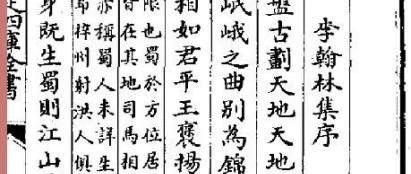 李翰林集序
盤古劃天地天地
岷峨之曲別為錦
相如君平王褒揚
限也蜀於方位居
在其地司馬相
亦稱蜀人未詳生
梓州射洪人俱
身既生蜀則江山
四庫全書